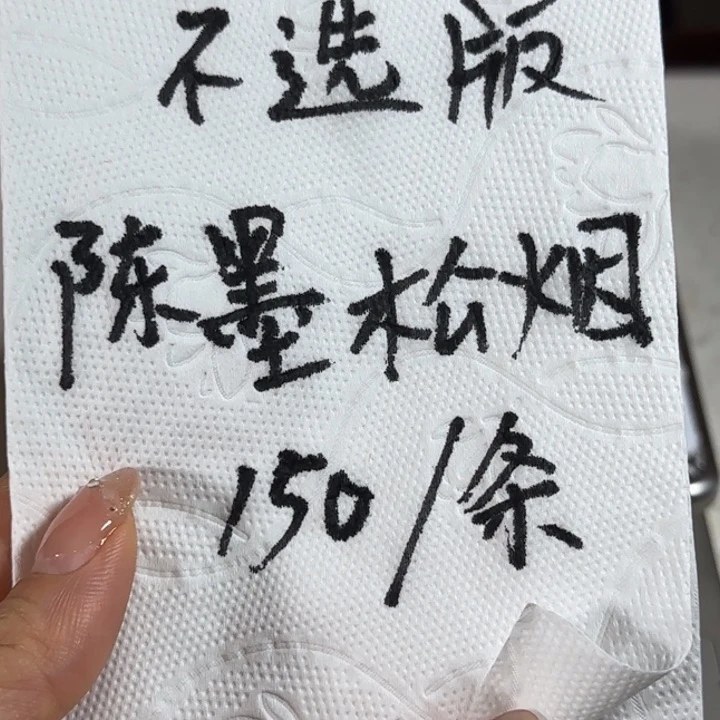 不选版
陈墨松烟
150/条